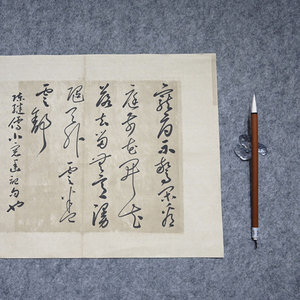 寵辱不驚閑看
庭前花開花
落去留無意漫
隨天外雲卷
雲舒
陳繼儒小窗幽記句也